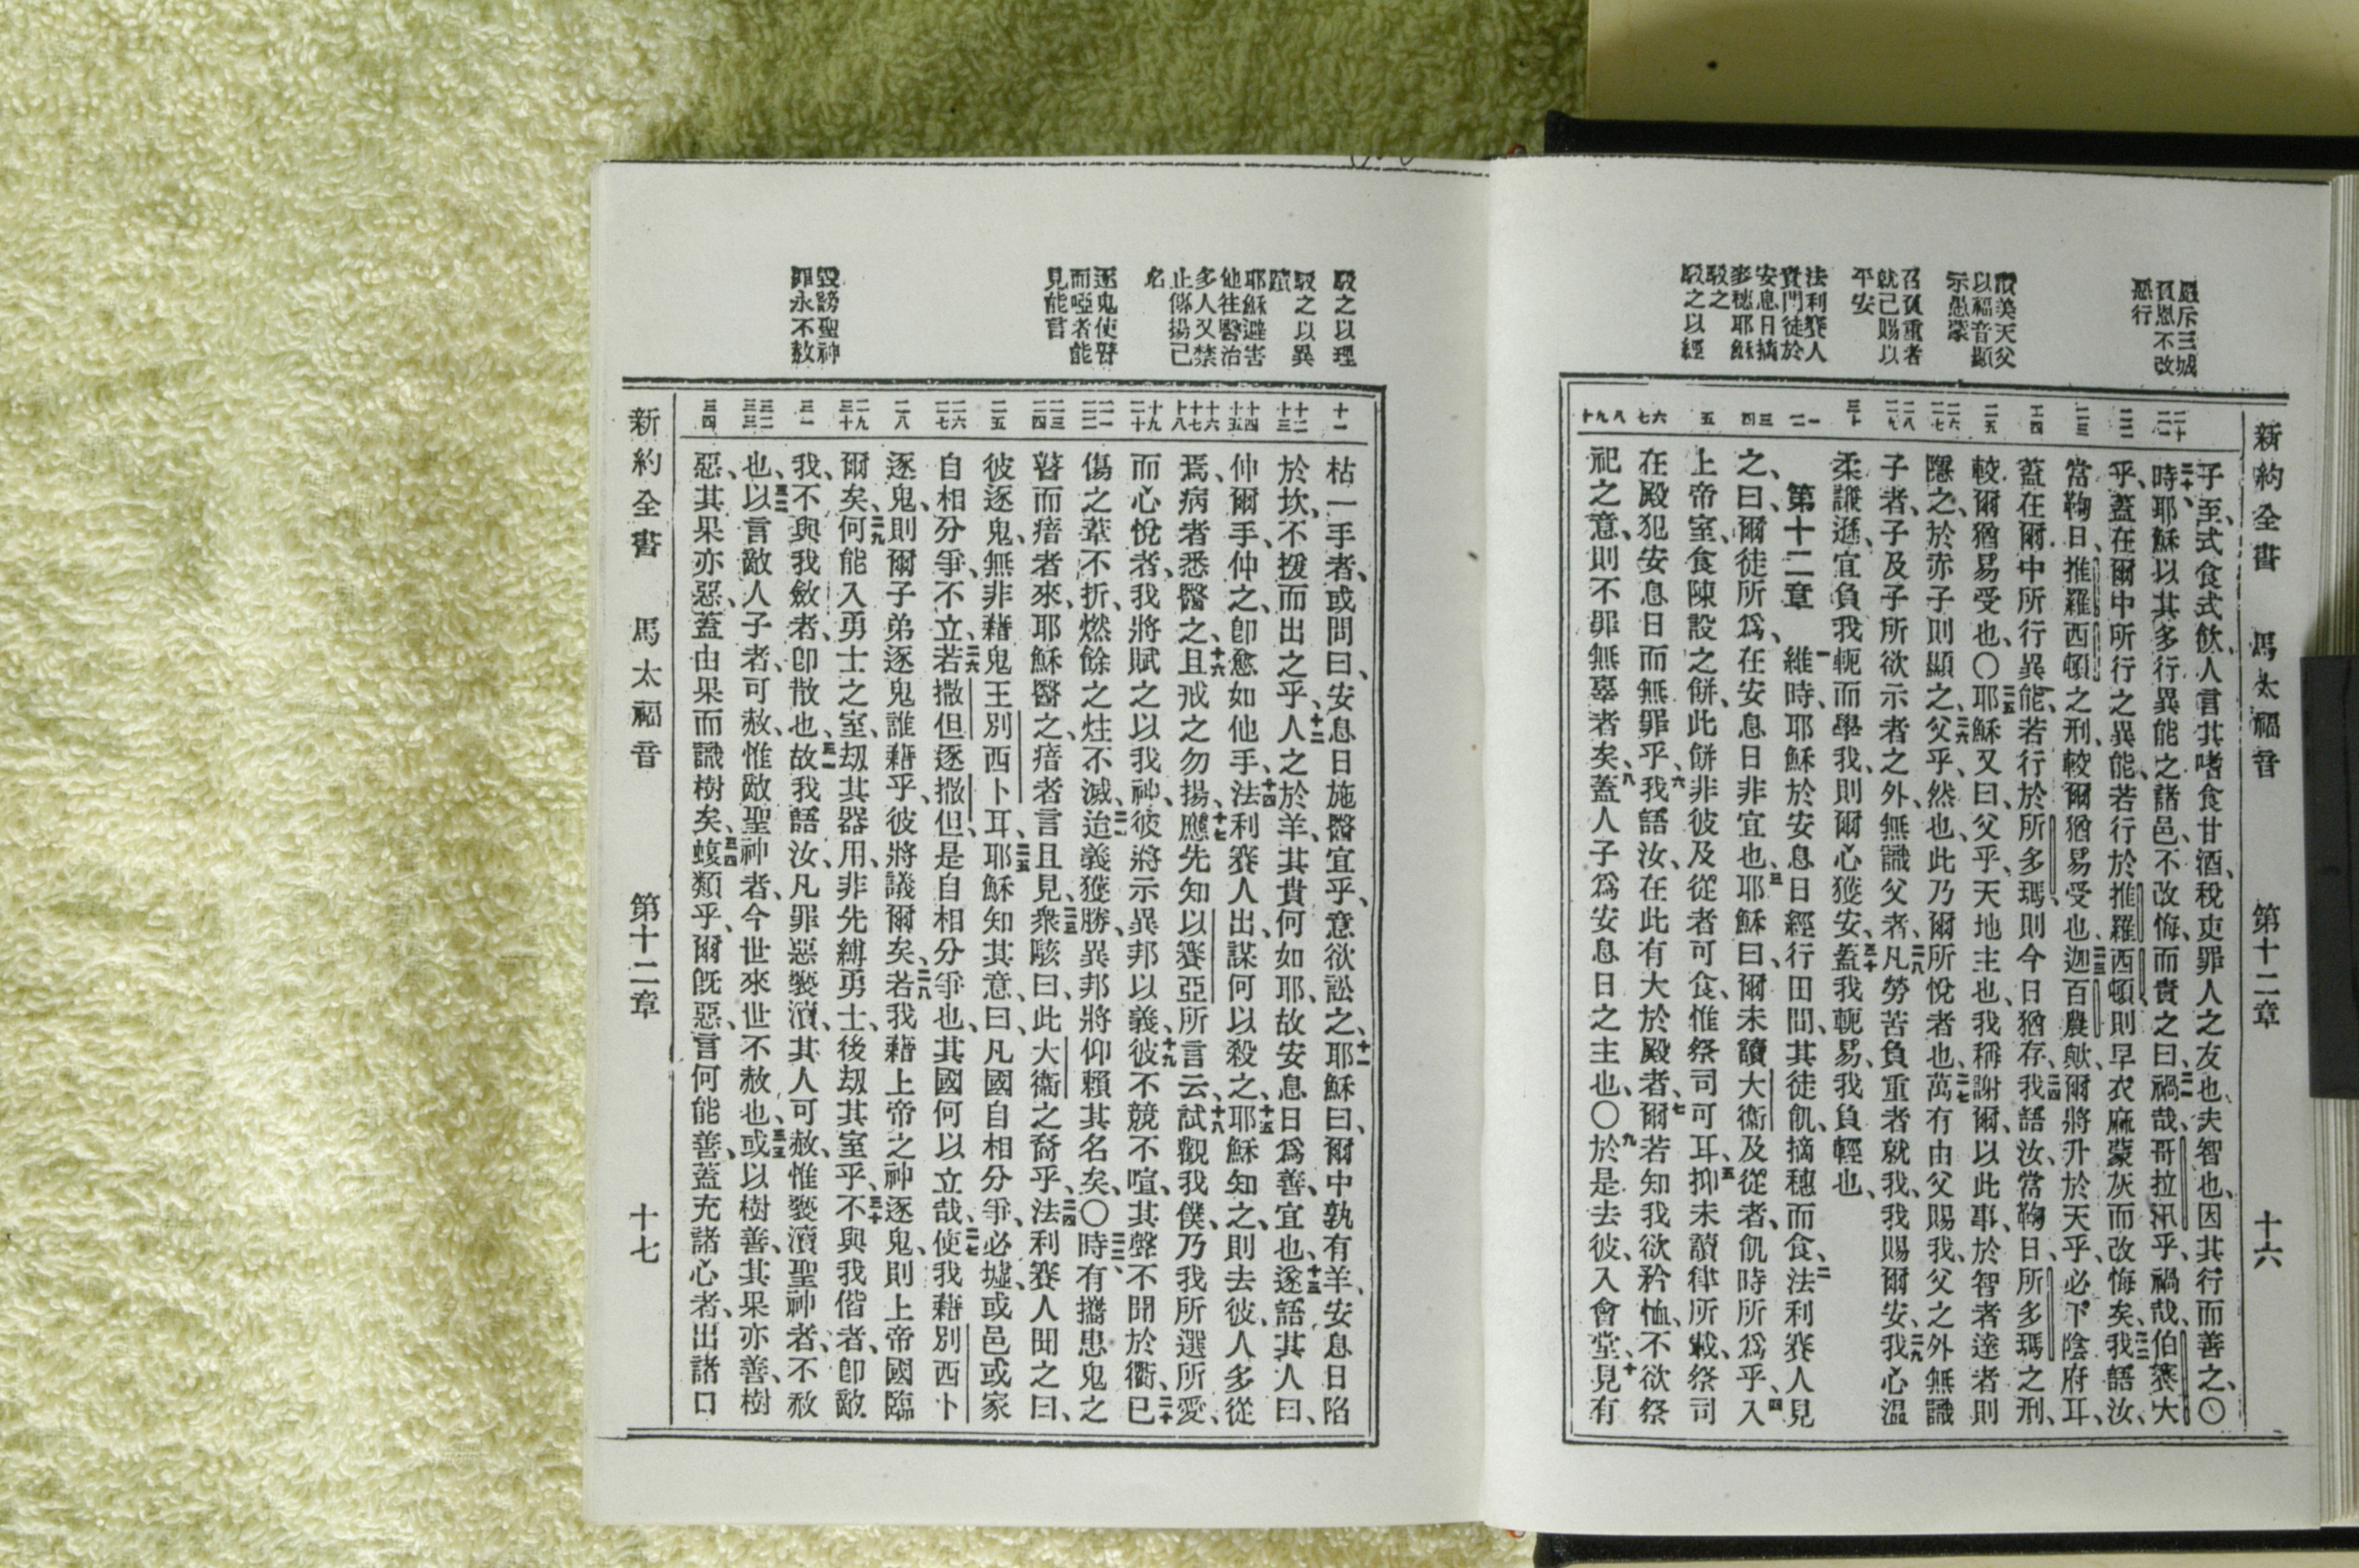 新約全書 馬太福音 第十二章 十六
嚴斥三城
負恩不改
惡行
讚美天父
以福音顯
示愚蒙
召負重者
就己賜以
平安
法利賽人
責門徒於
安息日摘
麥穗耶穌
駁之
駁之以經
二十 二一
二二
二三
二四
二五
二六 二七
二八 二九
三十
一 二
三 四
五
六 七
八 九 十
子至、式食式飲、人言其嗜食甘酒、稅吏罪人之友也、夫智也、因其行而善之、〇
二十時、耶穌以其多行異能之諸邑、不改悔、而責之曰、二一禍哉、哥拉汛乎、禍哉、伯賽大
乎、蓋在爾中所行之異能、若行於推羅西頓、則早衣麻蒙灰而改悔矣、二二我語汝、
當鞫日、推羅西頓之刑、較爾猶易受也、二三迦百農歟、爾將升於天乎、必下陰府耳、
蓋在爾中所行異能、若行於所多瑪、則今日猶存、二四我語汝、當鞫日、所多瑪之刑、
較爾猶易受也、〇二五耶穌又曰、父乎、天地主也、我稱謝爾、以此事、於智者達者則
隱之、於赤子則顯之、二六父乎、然也、此乃爾所悅者也、二七萬有由父賜我、父之外無識
子者、子及子所欲示者之外、無識父者、二八凡勞苦負重者就我、我賜爾安、二九我心溫
柔謙遜、宜負我軛而學我、則爾心獲安、三十蓋我軛易、我負輕也、
第十二章 一維時、耶穌於安息日經行田間、其徒飢、摘穗而食、二法利賽人見
之、曰、爾徒所爲、在安息日非宜也、三耶穌曰、爾未讀大衞及從者、飢時所爲乎、四入
上帝室、食陳設之餅、此餅非彼及從者可食、惟祭司可耳、五抑未讀律所載、祭司
在殿犯安息日而無罪乎、六我語汝、在此有大於殿者、七爾若知我欲矜恤、不欲祭
祀之意、則不罪無辜者矣、八蓋人子爲安息日之主也、〇九於是去彼、入會堂、十見有
駁之以理
駁之以異
蹟
耶穌避害
他往醫治
多人又禁
止傳揚己
名
逐鬼使瞽
而啞者能
見能言
毀謗聖神
罪永不赦
十一
十二 十三
十四 十五
十六 十七 十八
十九 二十
二一 二二
二三 二四
二五
二六 二七
二八
二九 三十
三一
三二 三三
三四
枯一手者、或問曰、安息日施醫宜乎、意欲訟之、十一耶穌曰、爾中孰有羊、安息日陷
於坎、不援而出之乎、十二人之於羊、其貴何如耶、故安息日爲善、宜也、十三遂語其人曰、
伸爾手、伸之、卽愈如他手、十四法利賽人出、謀何以殺之、十五耶穌知之、則去彼、人多從
焉、病者悉醫之、十六且戒之勿揚、十七應先知以賽亞所言云、十八試觀我僕、乃我所選所愛、
而心悅者、我將賦之以我神、彼將示異邦以義、十九彼不競不喧、其聲不聞於衢、二十已
傷之葦不折、燃餘之炷不滅、迨義獲勝、二一異邦將仰賴其名矣、〇二二時、有攜患鬼之
瞽而瘖者來、耶穌醫之、瘖者言且見、二三衆駭曰、此大衞之裔乎、二四法利賽人聞之曰、
彼逐鬼、無非藉鬼王別西卜耳、二五耶穌知其意、曰、凡國自相分爭、必墟、或邑或家
自相分爭、不立、二六若撒但逐撒但、是自相分爭也、其國何以立哉、二七使我藉別西卜
逐鬼、則爾子弟逐鬼誰藉乎、彼將議爾矣、二八若我藉上帝之神逐鬼、則上帝國臨
爾矣、二九何能入勇士之室、劫其器用、非先縛勇士、後劫其室乎、三十不與我偕者、卽敵
我、不與我斂者、卽散也、三一故我語汝、凡罪惡褻瀆、其人可赦、惟褻瀆聖神者、不赦
也、三二以言敵人子者、可赦、惟敵聖神者、今世來世不赦也、三三或以樹善、其果亦善、樹
惡、其果亦惡、蓋由果而識樹矣、三四蝮類乎、爾旣惡、言何能善、蓋充諸心者、出諸口
新約全書 馬太福音 第十二章 十七